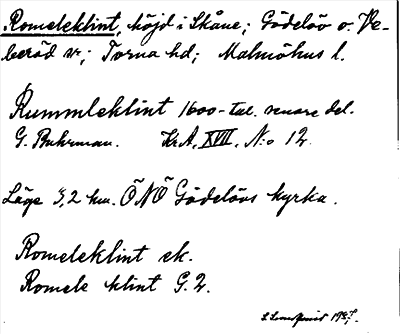 Romeleklint, höjd i Skåne; Gödelöv o. Ve-
beröd sn; Torna hd; Malmöhus l.
Rummleklint 1600-tal. senare del.
G. Buhrman. KrA, XVIII, N:o 12.
Läge 3,2 km. ÖNÖ Gödelövs kyrka.
Romeleklint ek.
Romele klint G.2.
S. Lundquist 1927.